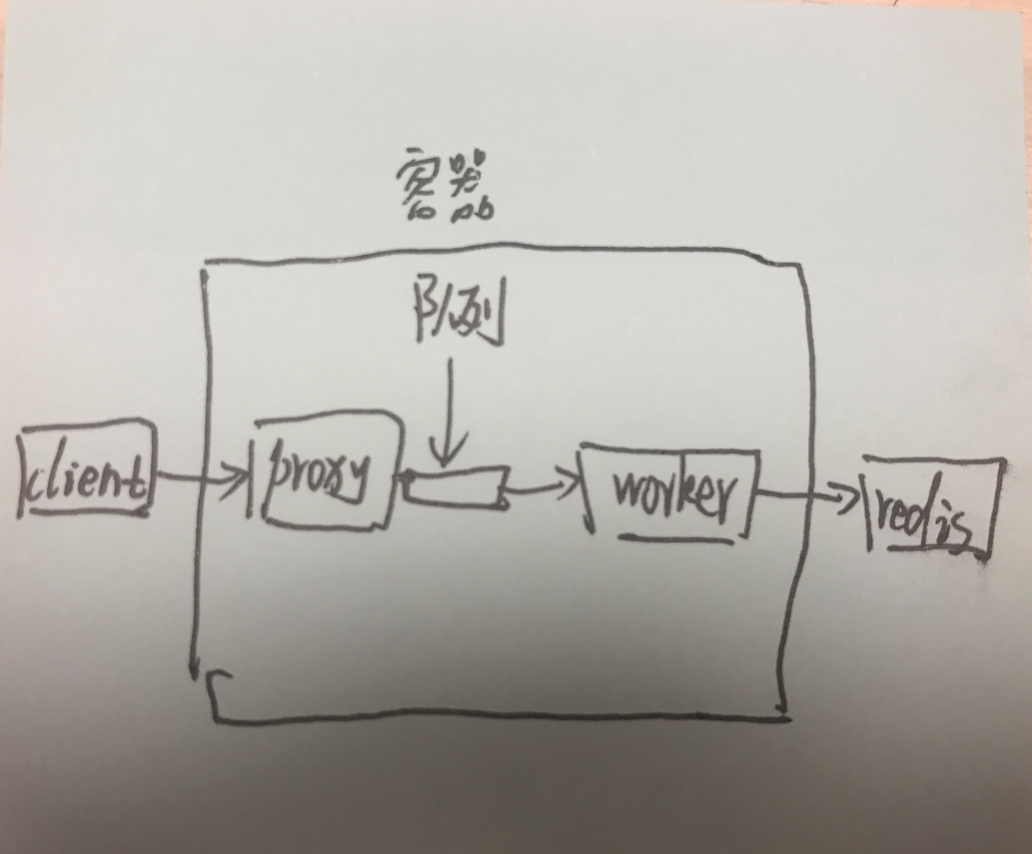 容器
队列
client
proxy
worker
redis